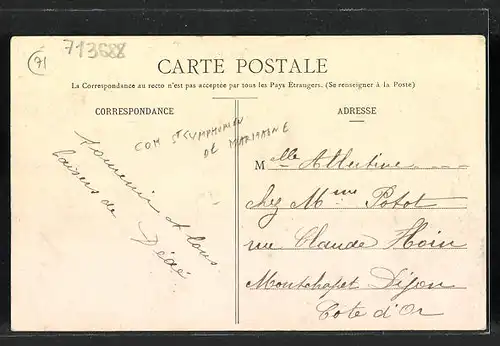 71
713688
CARTE POSTALE
La Correspondance au recto n'est pas acceptée par tous les Pays Etrangers. (Se renseigner à la Poste)
CORRESPONDANCE
ADRESSE
COM ST SYMPHORIEN
DE MARMAGNE
Souvenir et bons
baisers de
Dédé
Melle Albertine
chez Mme Potot
rue Claude Hoin
Montchapet Dijon
Cote d'Or